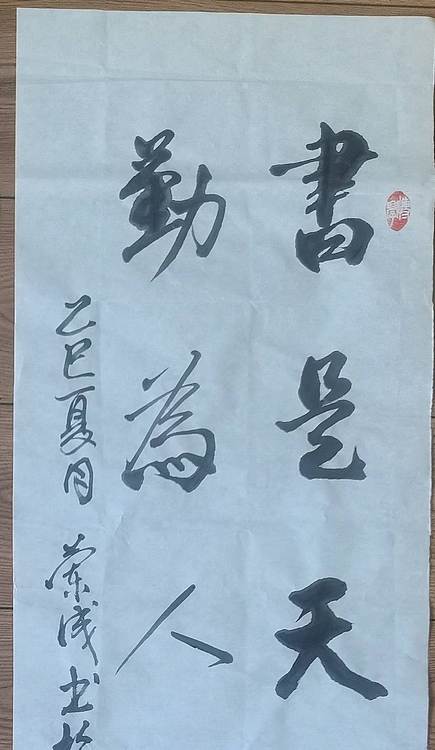 書是天
勤為人
乙巳夏月
書於